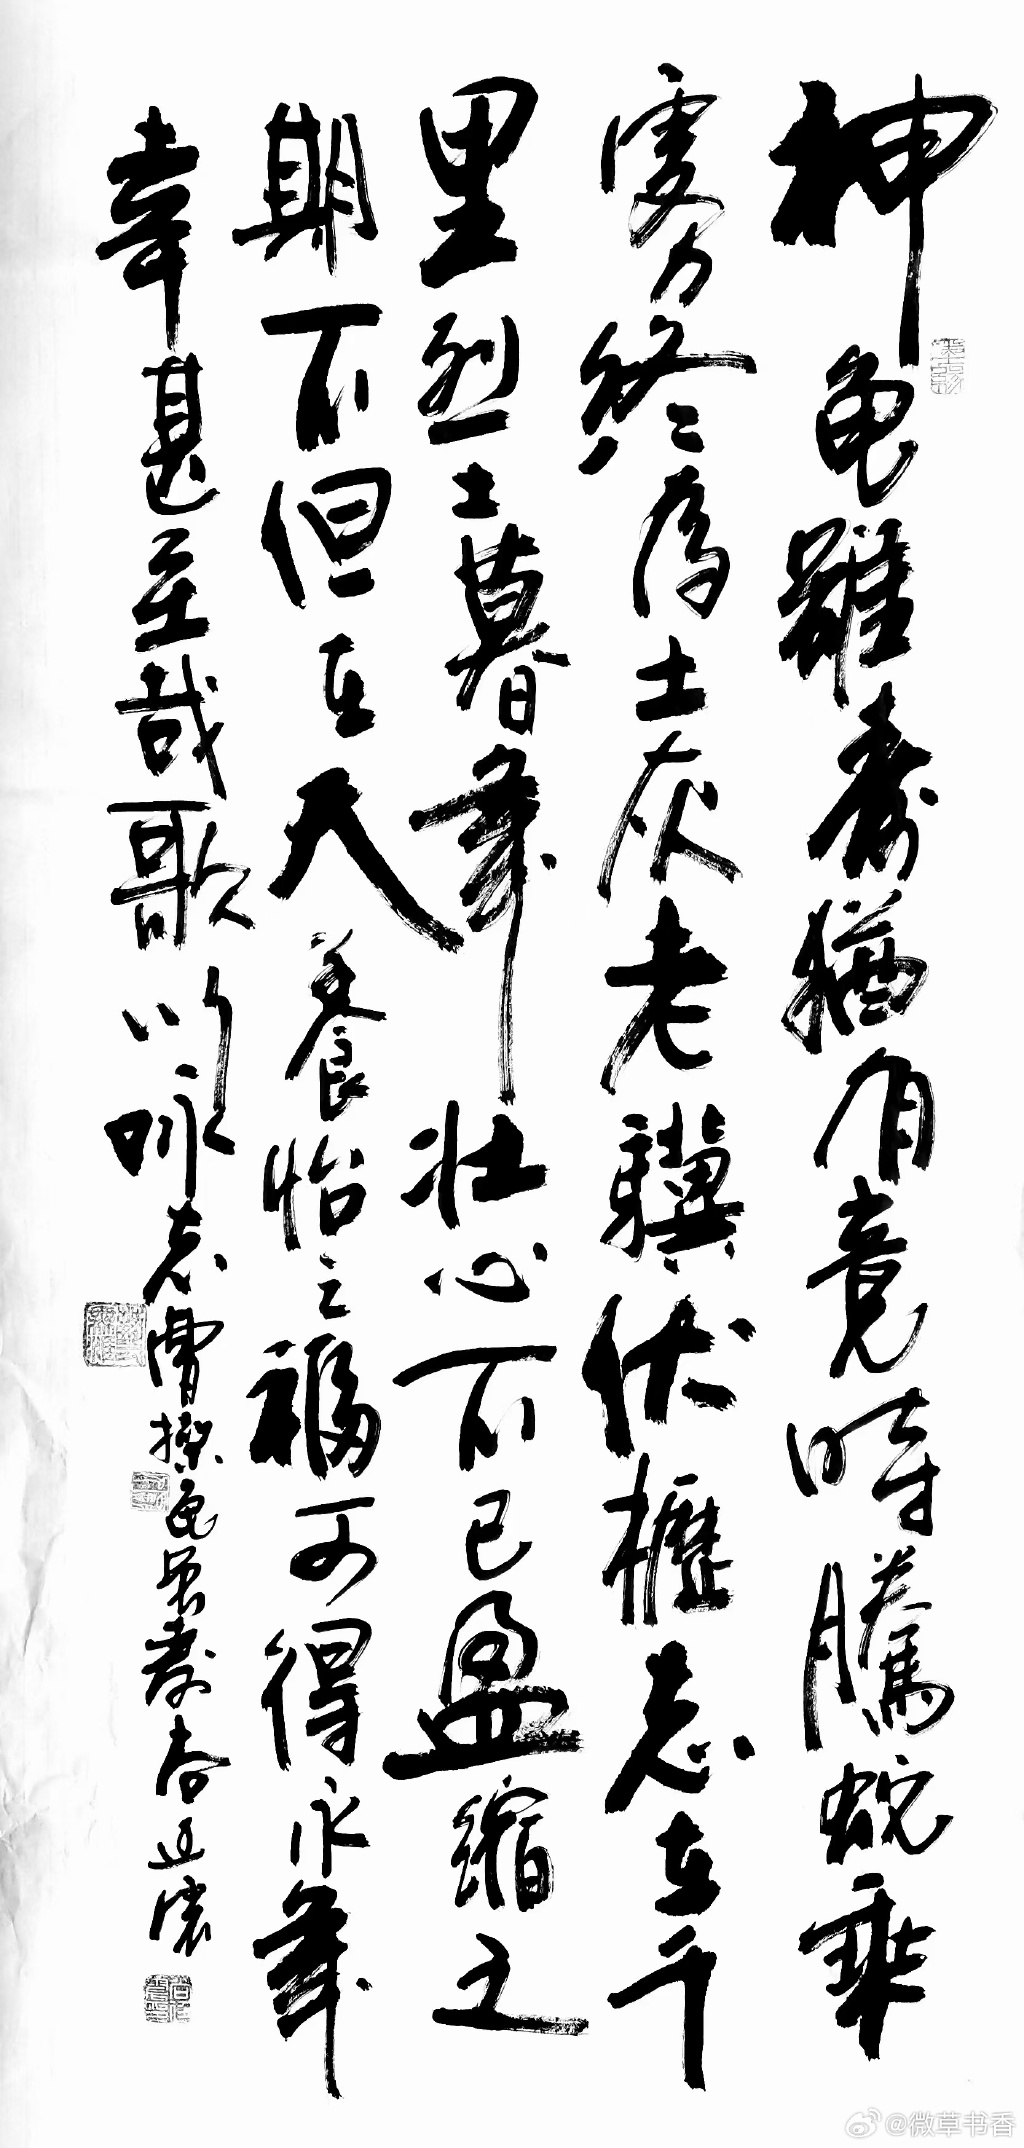 神龜雖壽猶有竟時騰蛇乘
霧終為土灰老驥伏櫪志在千
里烈士暮年壯心不已盈縮之
期不但在天養怡之福可得永年
幸甚至哉歌以咏志曹操龜虽壽
@微草书香